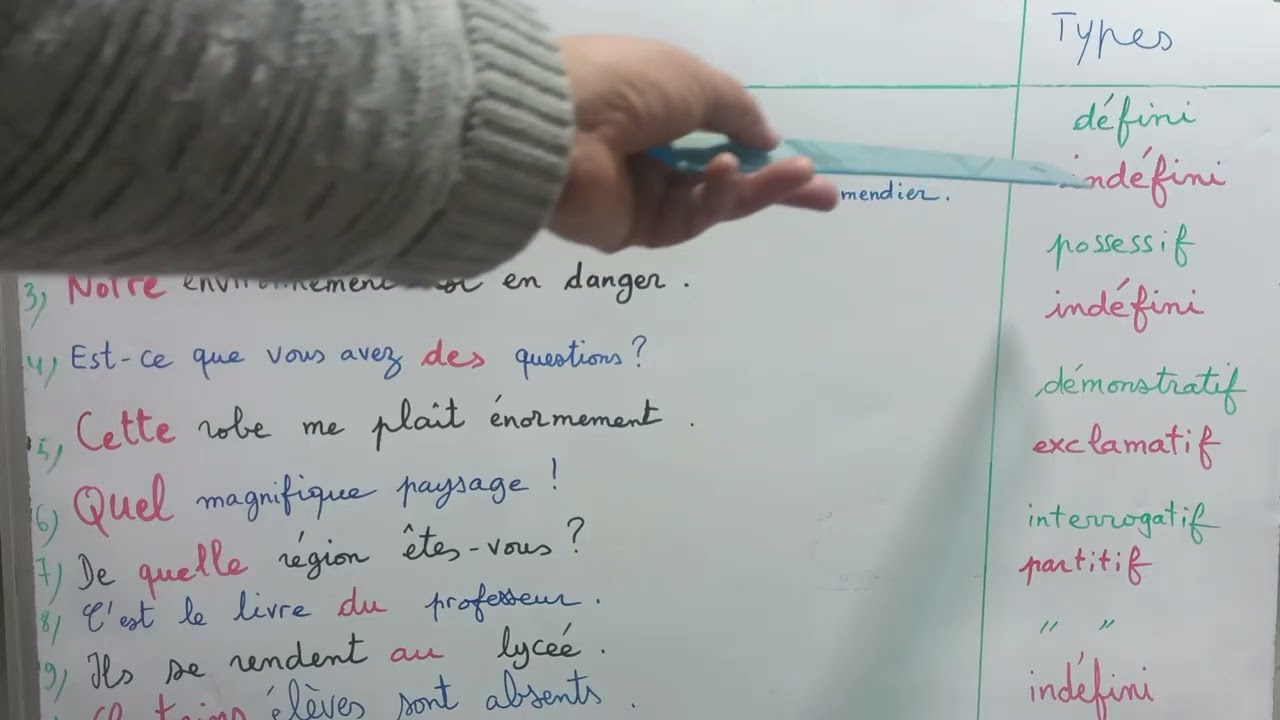 Types
défini
indéfini
mendier.
possessif
3) Notre environnement en danger.
indéfini
4) Est-ce que vous avez des questions?
démonstratif
5) Cette robe me plaît énormement.
exclamatif
6) Quel magnifique paysage!
interrogatif
7) De quelle région êtes-vous?
partitif
8) C'est le livre du professeur.
" "
9) Ils se rendent au lyceé.
indéfini
élèves sont absents.